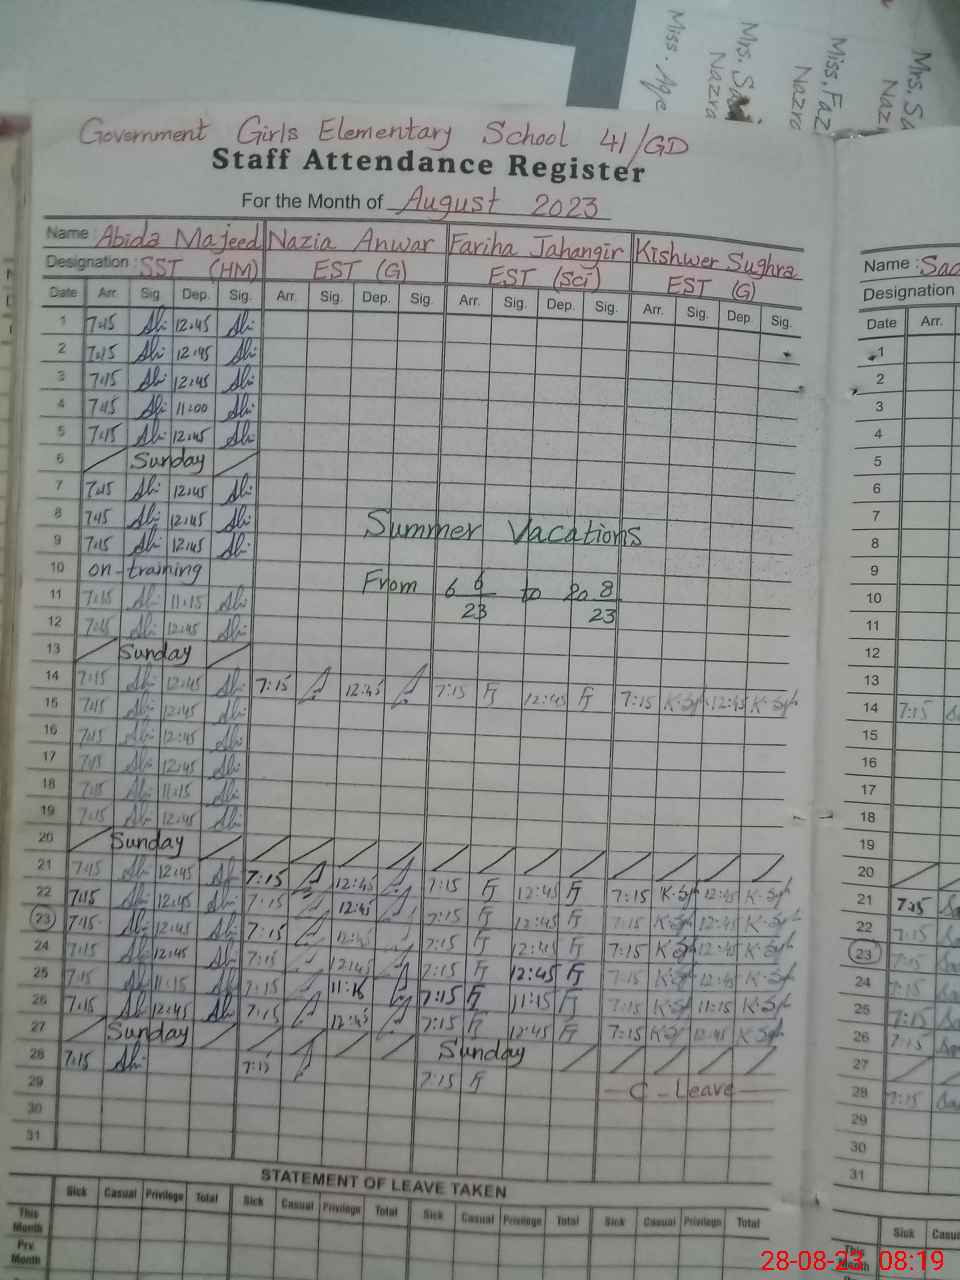 Miss.
Mrs.
Nazra
Miss. Faz
Nazra
Mrs. Sa
Naz
Government Girls Elementary School 41/GD
Staff Attendance Register
For the Month of August 2023
Name : Abida Majeed Nazia Anwar Fariha Jahangir Kishwer Sughra
Designation : SST (HM) EST (G) EST (Sci) EST (G)
Date Arr. Sig. Dep. Sig. Arr. Sig. Dep. Sig. Arr. Sig. Dep. Sig. Arr. Sig. Dep. Sig.
1 7:15 12:45
2 7:15 12:45
3 7:15 12:45
4 7:15 11:00
5 7:15 12:45
6 Sunday
7 7:15 12:45
8 7:15 12:45
9 7:15 12:45
10 on-training
11 7:15 11:15
12 7:15 12:45
13 Sunday
Summer Vacations
From 6 6/23 to 20 8/23
14 7:15 12:45 7:15 12:45 7:15 FJ 12:45 FJ 7:15 12:45
15 7:15 12:45
16 7:15 12:45
17 7:15 12:45
18 7:15 11:15
19 7:15 12:45
20 Sunday
21 7:15 12:45 7:15 12:45 7:15 FJ 12:45 FJ 7:15 12:45
22 7:15 12:45 7:15 12:45 7:15 FJ 12:45 FJ 7:15 12:45
23 7:15 12:45 7:15 12:45 7:15 FJ 12:45 FJ 7:15 12:45
24 7:15 12:45 7:15 12:45 7:15 FJ 12:45 FJ 7:15 12:45
25 7:15 11:15 7:15 11:15 7:15 FJ 11:15 FJ 7:15 11:15
26 7:15 12:45 7:15 12:45 7:15 FJ 12:45 FJ 7:15 12:45
27 Sunday Sunday
28 7:15 7:15 7:15 FJ C - Leave
29
30
31
STATEMENT OF LEAVE TAKEN
Sick Casual Privilege Total Sick Casual Privilege Total Sick Casual Privilege Total Sick Casual Privilege Total
This Month
Prv. Month
Name :
Designation
Date Arr.
1
2
3
4
5
6
7
8
9
10
11
12
13
14 7:15
15
16
17
18
19
20
21 7:15
22 7:15
23 7:15
24 7:15
25 7:15
26 7:15
27
28 7:15
29
30
31
Sick Casu
This Month
28-08-23 08:19